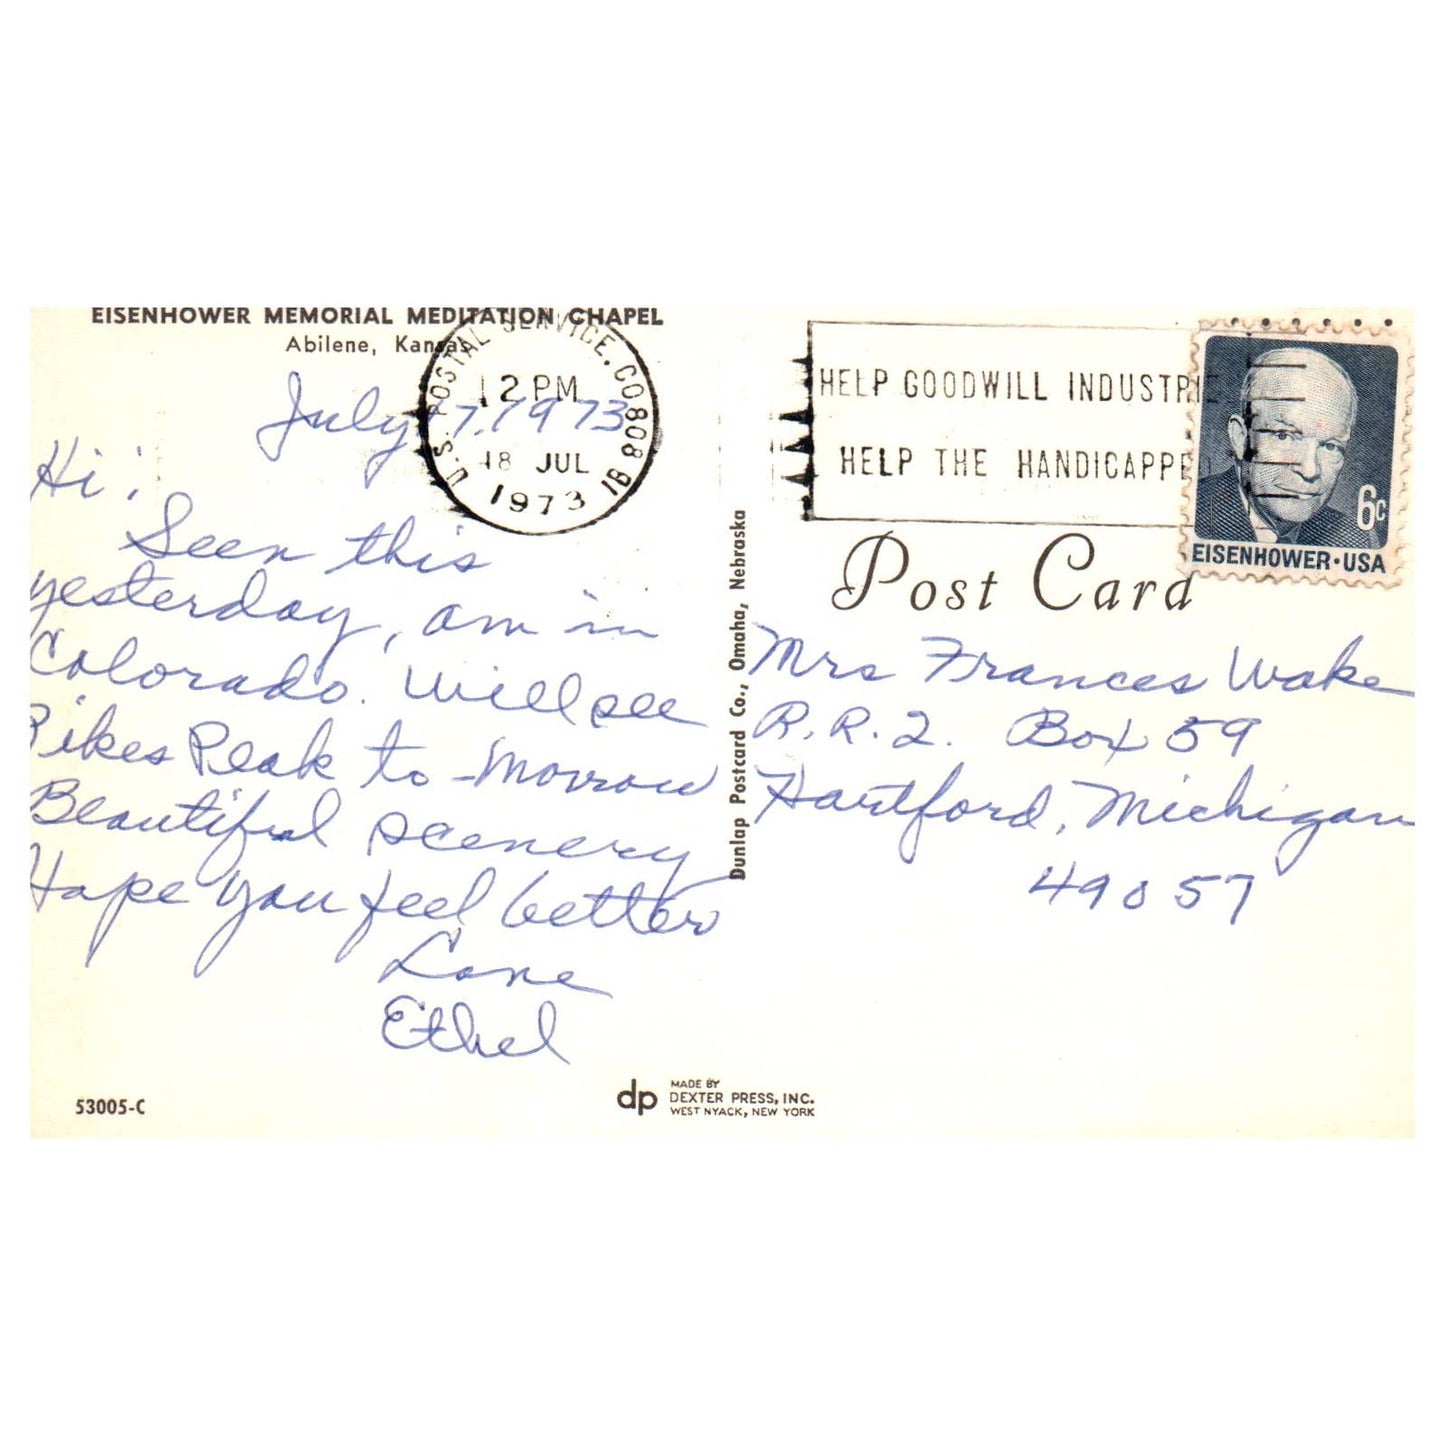 EISENHOWER MEMORIAL MEDITATION CHAPEL
Abilene, Kansas
July 17, 1973
Hi!
Seen this
yesterday, am in
Colorado. Will see
Pikes Peak to-morrow
Beautiful scenery
Hope you feel better
Love
Ethel
53005-C
U.S. POSTAL SERVICE, CO 808 81
12 PM
18 JUL
1973
HELP GOODWILL INDUSTRIE
HELP THE HANDICAPPE
6c
EISENHOWER·USA
Post Card
Dunlap Postcard Co., Omaha, Nebraska
Mrs Frances Wake
R.R.2. Box 59
Hartford, Michigan
49057
dp
MADE BY
DEXTER PRESS, INC.
WEST NYACK, NEW YORK